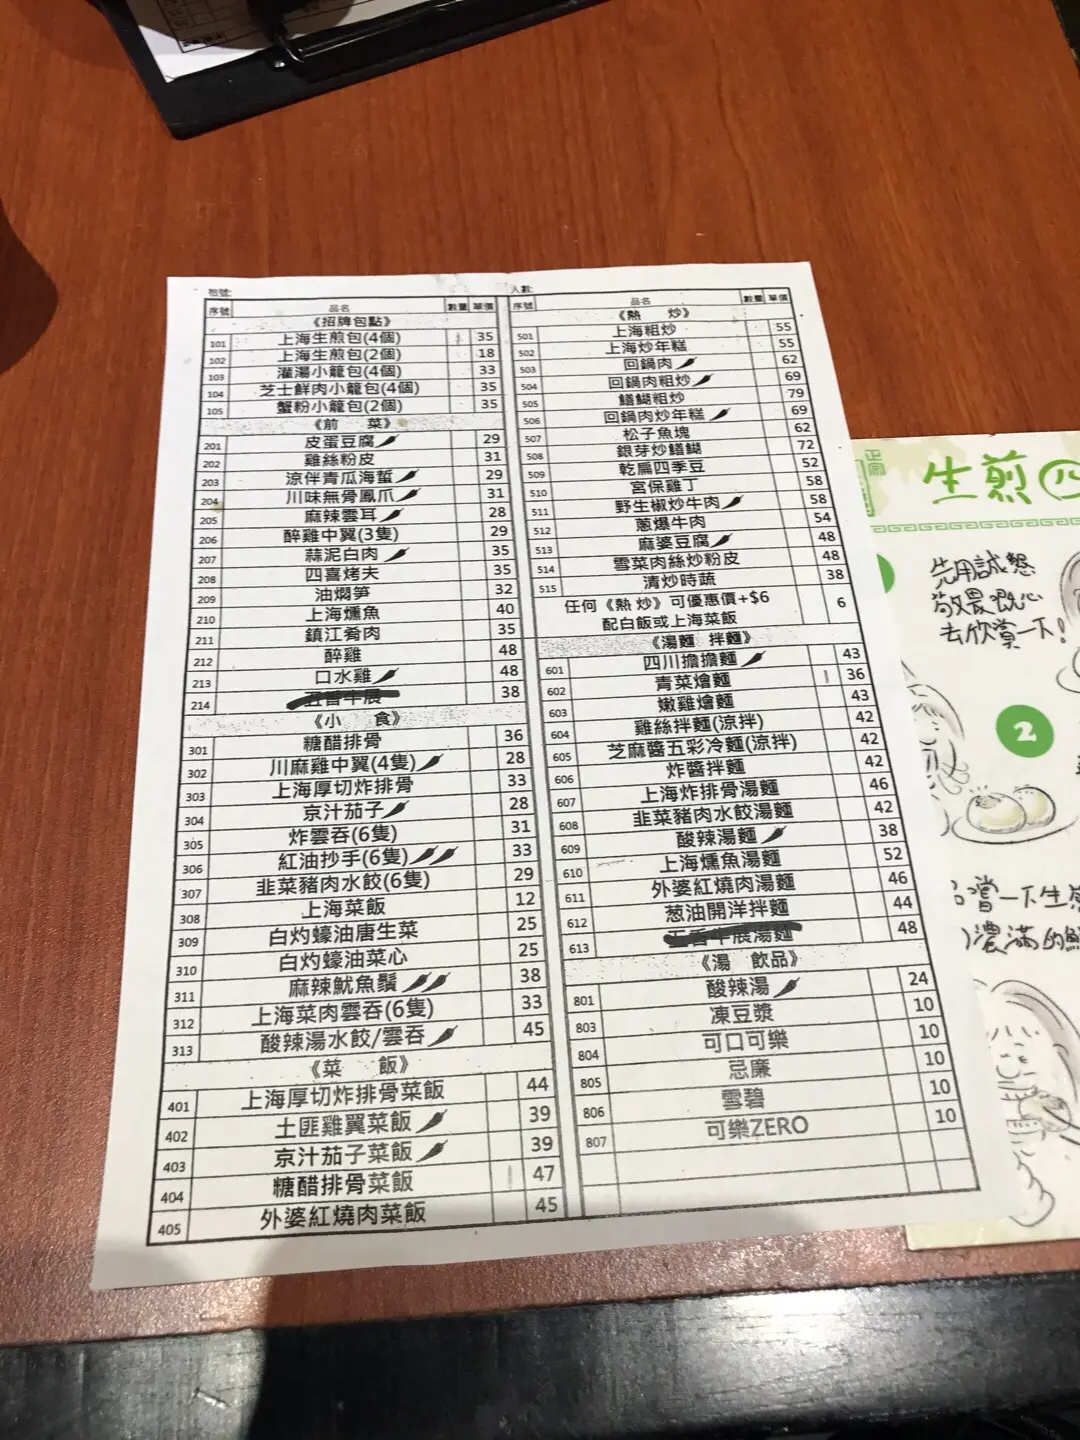 枱號:
人數:
序號 品名 數量 單價
《招牌包點》
101 上海生煎包(4個) 35
102 上海生煎包(2個) 18
103 灌湯小籠包(4個) 33
104 芝士鮮肉小籠包(4個) 35
105 蟹粉小籠包(2個) 35
《前 菜》
201 皮蛋豆腐 29
202 雞絲粉皮 31
203 涼伴青瓜海蜇 29
204 川味無骨鳳爪 31
205 麻辣雲耳 28
206 醉雞中翼(3隻) 29
207 蒜泥白肉 35
208 四喜烤夫 35
209 油燜筍 32
210 上海燻魚 40
211 鎮江肴肉 35
212 醉雞 48
213 口水雞 48
214 五香牛展 38
《小 食》
301 糖醋排骨 36
302 川麻雞中翼(4隻) 28
303 上海厚切炸排骨 33
304 京汁茄子 28
305 炸雲吞(6隻) 31
306 紅油抄手(6隻) 33
307 韭菜豬肉水餃(6隻) 29
308 上海菜飯 12
309 白灼蠔油唐生菜 25
310 白灼蠔油菜心 25
311 麻辣魷魚鬚 38
312 上海菜肉雲吞(6隻) 33
313 酸辣湯水餃/雲吞 45
《菜 飯》
401 上海厚切炸排骨菜飯 44
402 土匪雞翼菜飯 39
403 京汁茄子菜飯 39
404 糖醋排骨菜飯 47
405 外婆紅燒肉菜飯 45
序號 品名 數量 單價
《熱 炒》
501 上海粗炒 55
502 上海炒年糕 55
503 回鍋肉 62
504 回鍋肉粗炒 69
505 鱔鰗粗炒 79
506 回鍋肉炒年糕 69
507 松子魚塊 62
508 銀芽炒鱔鰗 72
509 乾扁四季豆 52
510 宮保雞丁 58
511 野生椒炒牛肉 58
512 蔥爆牛肉 54
513 麻婆豆腐 48
514 雪菜肉絲炒粉皮 48
515 清炒時蔬 38
任何《熱 炒》可優惠價+$6 6
配白飯或上海菜飯
《湯麵 拌麵》
601 四川擔擔麵 43
602 青菜燴麵 36
603 嫩雞燴麵 43
604 雞絲拌麵(涼拌) 42
605 芝麻醬五彩冷麵(涼拌) 42
606 炸醬拌麵 42
607 上海炸排骨湯麵 46
608 韭菜豬肉水餃湯麵 42
609 酸辣湯麵 38
610 上海燻魚湯麵 52
611 外婆紅燒肉湯麵 46
612 葱油開洋拌麵 44
613 五香牛展湯麵 48
《湯 飲品》
801 酸辣湯 24
803 凍豆漿 10
804 可口可樂 10
805 忌廉 10
806 雪碧 10
807 可樂ZERO 10
正宗
生煎四
先用誠懇
敬畏嘅心
去欣賞一下!
2
嚐一下生煎
濃滿的鮮